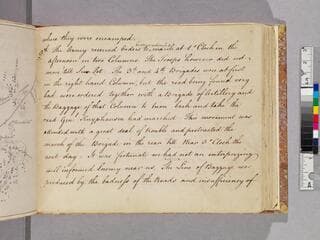 where they were encamped.
9th The Army received Orders to march at 4 oClock in the
afternoon in two Columns. The Troops however did not
move till Sun Set. The 3d. and 4th Brigades were at first
in the right hand Column, but the road being found very
bad were ordered together with a Brigade of Artillery and
the Baggage of that Column to turn back and take the
road Genl. Knyphausen had marched. This movement was
attended with a great deal of trouble and protracted the
march of the Brigade in the rear till near 3 oClock the
next day. It was fortunate we had not an enterprizing
well informed Enemy near us. The Line of Baggage was
produced by the badness of the Roads and insufficiency of